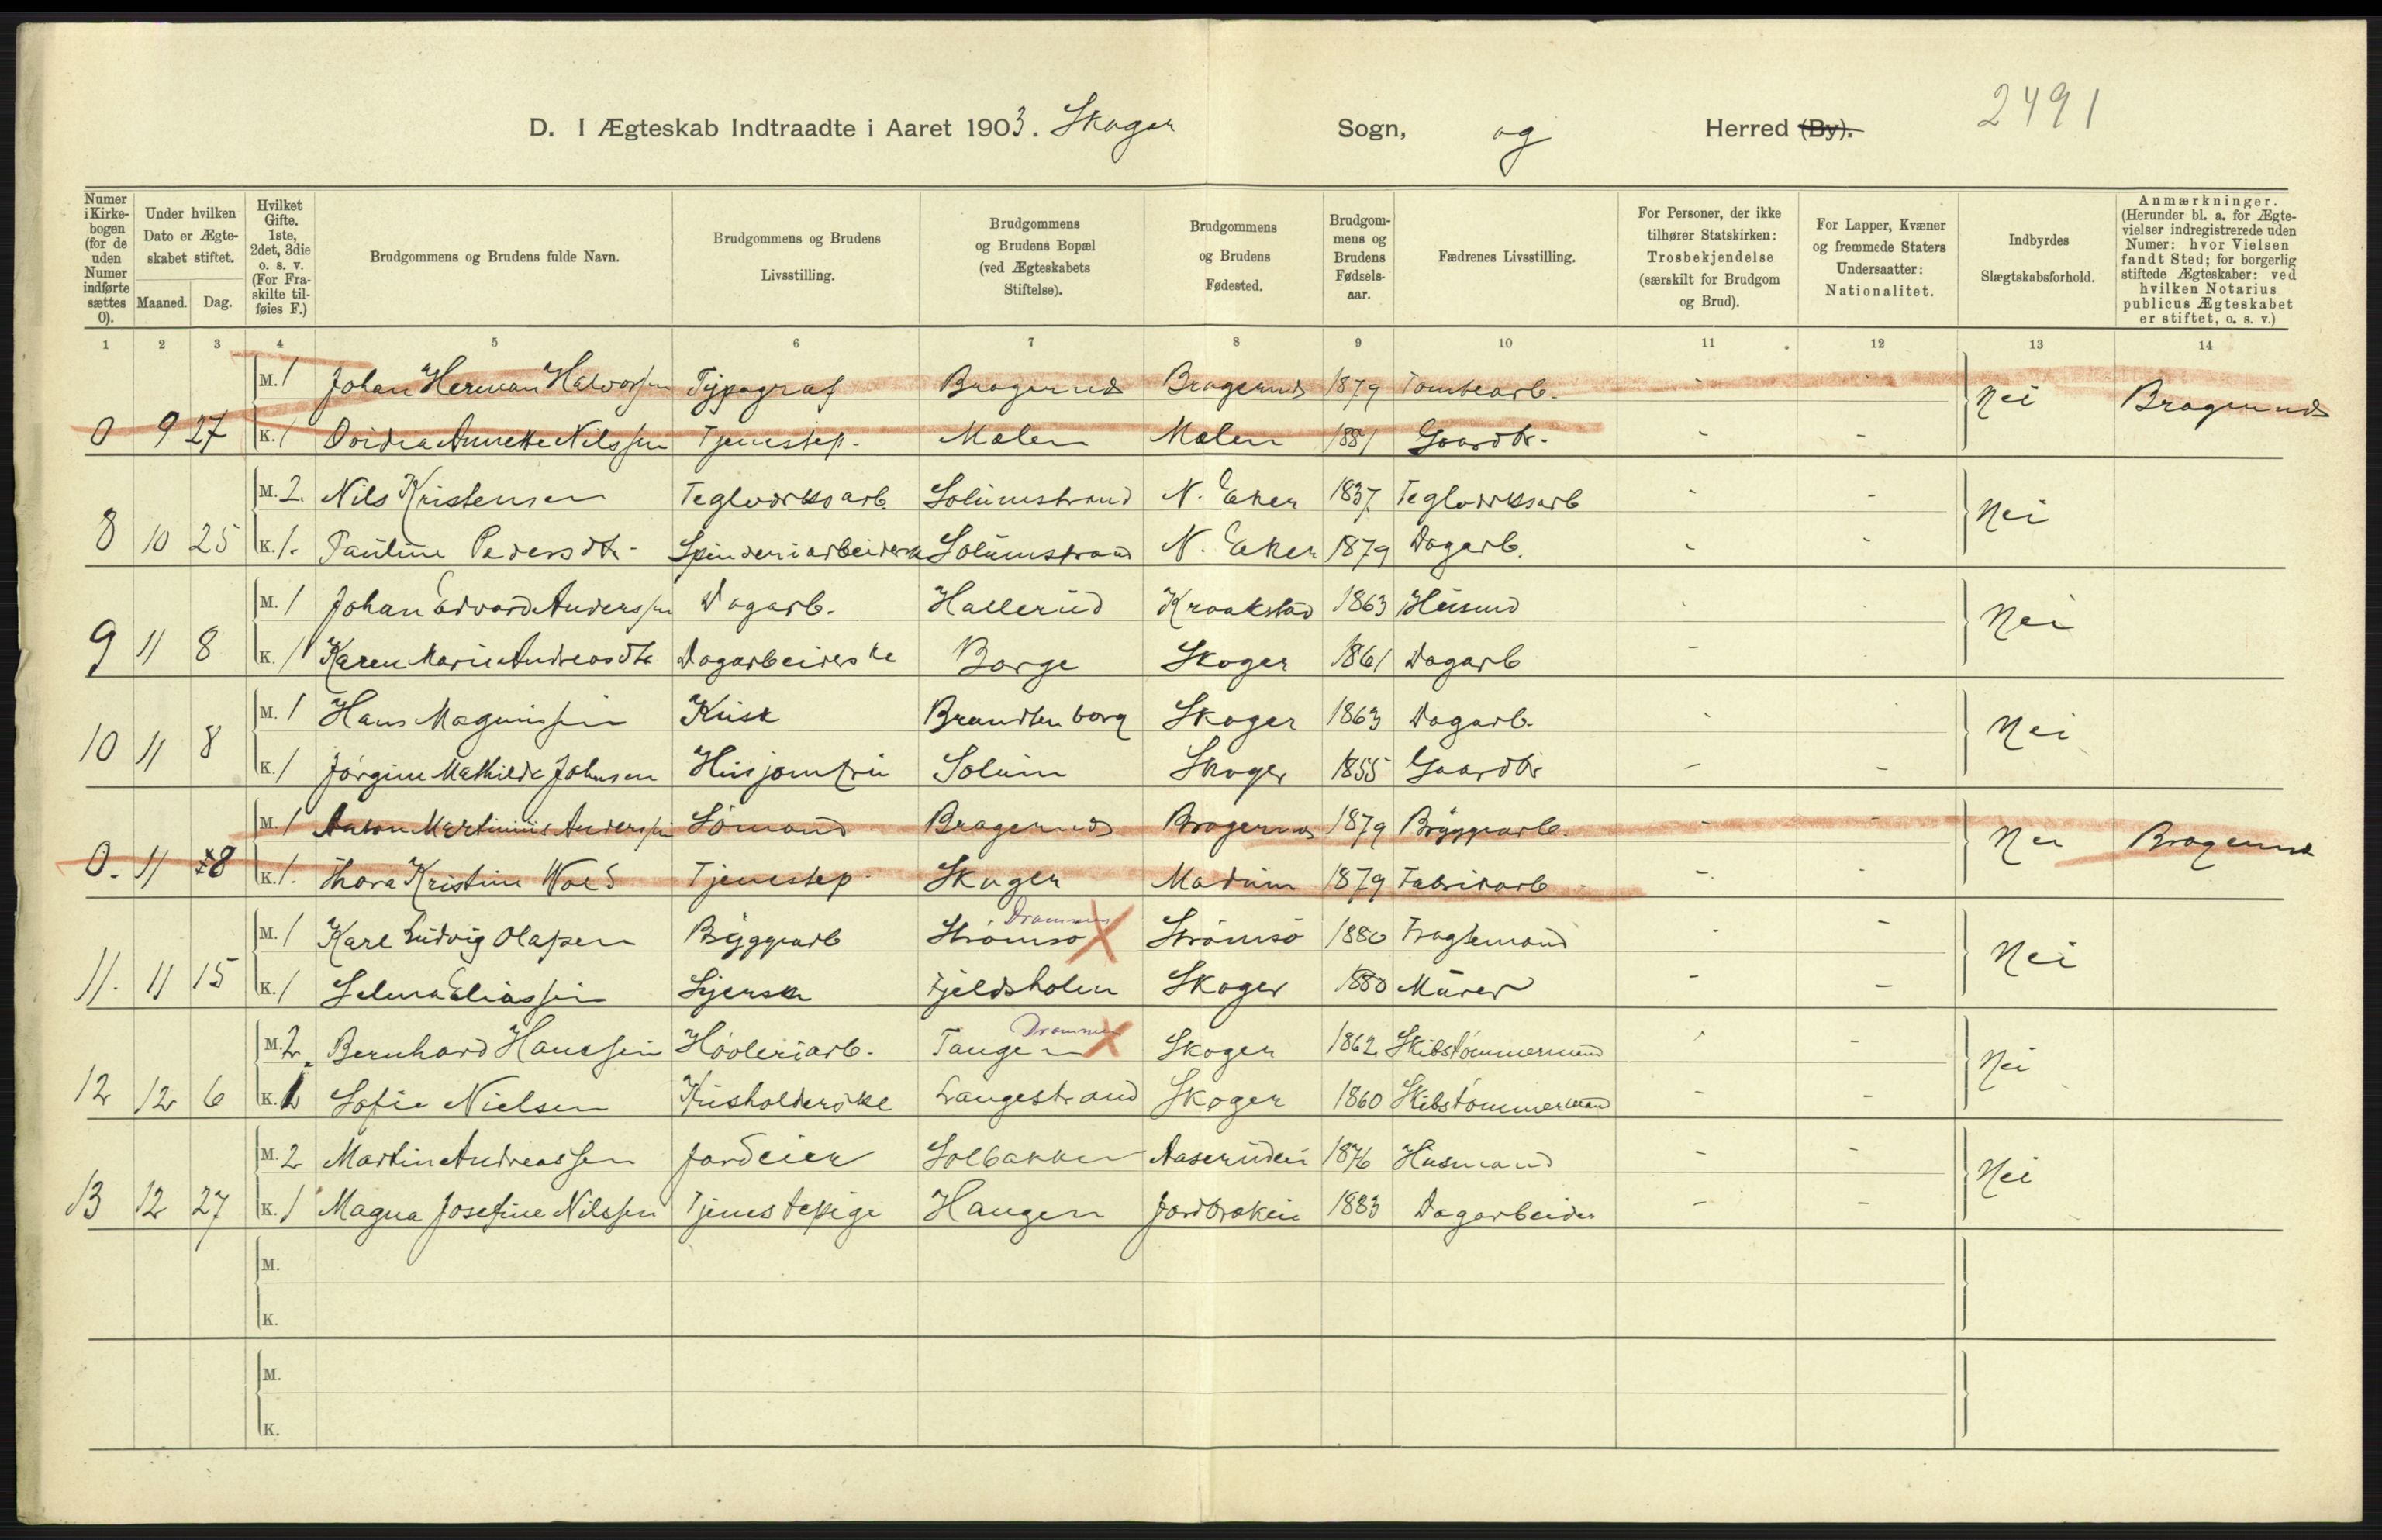 2491
D. I Ægteskab Indtraadte i Aaret 1903. Skoger Sogn, og Herred (By).
Numer i Kirkebogen (for de uden Numer indførte sættes 0). Under hvilken Dato er Ægteskabet stiftet. Maaned. Dag. Hvilket Gifte. 1ste, 2det, 3die o. s. v. (For Fraskilte tilføies F.) Brudgommens og Brudens fulde Navn. Brudgommens og Brudens Livsstilling. Brudgommens og Brudens Bopæl (ved Ægteskabets Stiftelse). Brudgommens og Brudens Fødested. Brudgommens og Brudens Fødselsaar. Fædrenes Livsstilling. For Personer, der ikke tilhører Statskirken: Trosbekjendelse (særskilt for Brudgom og Brud). For Lapper, Kvæner og fremmede Staters Undersaatter: Nationalitet. Indbyrdes Slægtskabsforhold. Anmærkninger. (Herunder bl. a. for Ægtevielser indregistrerede uden Numer: hvor Vielsen fandt Sted; for borgerlig stiftede Ægteskaber: ved hvilken Notarius publicus Ægteskabet er stiftet, o. s. v.)
1 2 3 4 5 6 7 8 9 10 11 12 13 14
M. 1 Johan Herman Halvorssen Typograf Bragernæs Bragernæs 1879 Tomtearb. - Nei Bragernæs
0 9 27 K. 1 Annette Nilssen Tjenestep. Malen Malen 1881 Gaardbr. - -
M. 2. Nils Kristensen Teglværksarb. Solumstrand N. Eker 1837 Teglværksarb - - Nei
8 10 25 K. 1. Pauline Pedersdtr. Spinderiarbeiderske Solumstrand N. Eker 1879 Dagarb. - -
M. 1 Johan Edvard Anderssen Dagarb. Hallerud Kraakstad 1863 Husmd - Nei
9 11 8 K. 1 Karen Marie Andreasdtr Dagarbeiderske Borge Skoger 1861 Dagarb -
M. 1 Hans Magnussen Kusk Brandtenborg Skoger 1863 Dagarb. - Nei
10 11 8 K. 1 Jørgine Mathilde Johnsen Husjomfru Solum Skoger 1855 Gaardbr - -
M. 1 Anton Martinius Anderssen Sømand Bragernæs Bragernæs 1879 Bryggearb. - - Nei Bragernæs
0. 11 8 K. 1. Thora Kristine Wold Tjenestep. Skoger Modum 1879 Fabrikarb - -
M. 1 Karl Ludvig Olassen Bryggearb Strømsø Drammen Strømsø 1880 Fragtemand - - Nei
11. 11 15 K. 1 Selma Eliassen Syerske Fjeldsholen Skoger 1880 Murer - -
M. 2. Bernhard Hanssen Høvleriarb. Tangen Drammen Skoger 1862 Skibstømmermand - - Nei
12 12 6 K. 2 Sofie Nielsen Husholderske Langestrand Skoger 1860 Skibstømmermand - -
M. 2 Martin Andreassen Jordeier Solbakken Aaserudeie 1876 Husmand - - Nei
13 12 27 K. 1 Magna Josefine Nilssen Tjenestepige Haugen Jordbrækeie 1883 Dagarbeider - -
M.
K.
M.
K.